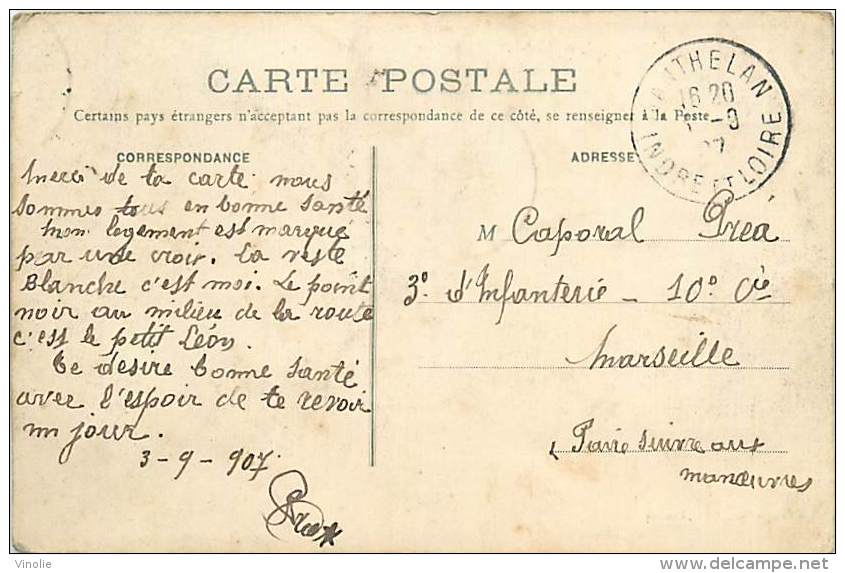 CARTE POSTALE
Certains pays étrangers n'acceptant pas la correspondance de ce côté, se renseigner à la Poste
CORRESPONDANCE
Merci de ta carte nous
sommes tous en bonne santé
mon logement est marqué
par une croix. La veste
Blanche c'est moi. Le point
noir au milieu de la route
c'est le petit Léon.
Te désire bonne santé
avec l'espoir de te revoir
un jour.
3-9-907
ADRESSE
M Caporal Préa
3e d'Infanterie - 10e Cie
Marseille
Faire suivre aux
manœuvres
16 20
INDRE ET LOIRE
Vinolie
delcampe.net